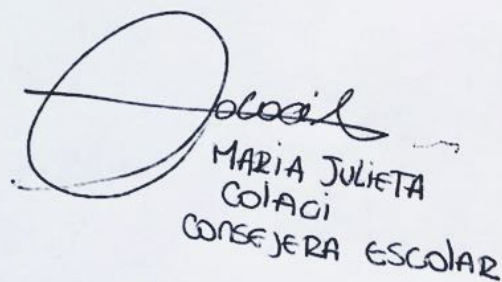 MARIA JULIETA
COlACi
CONSEJERA ESCOlAR